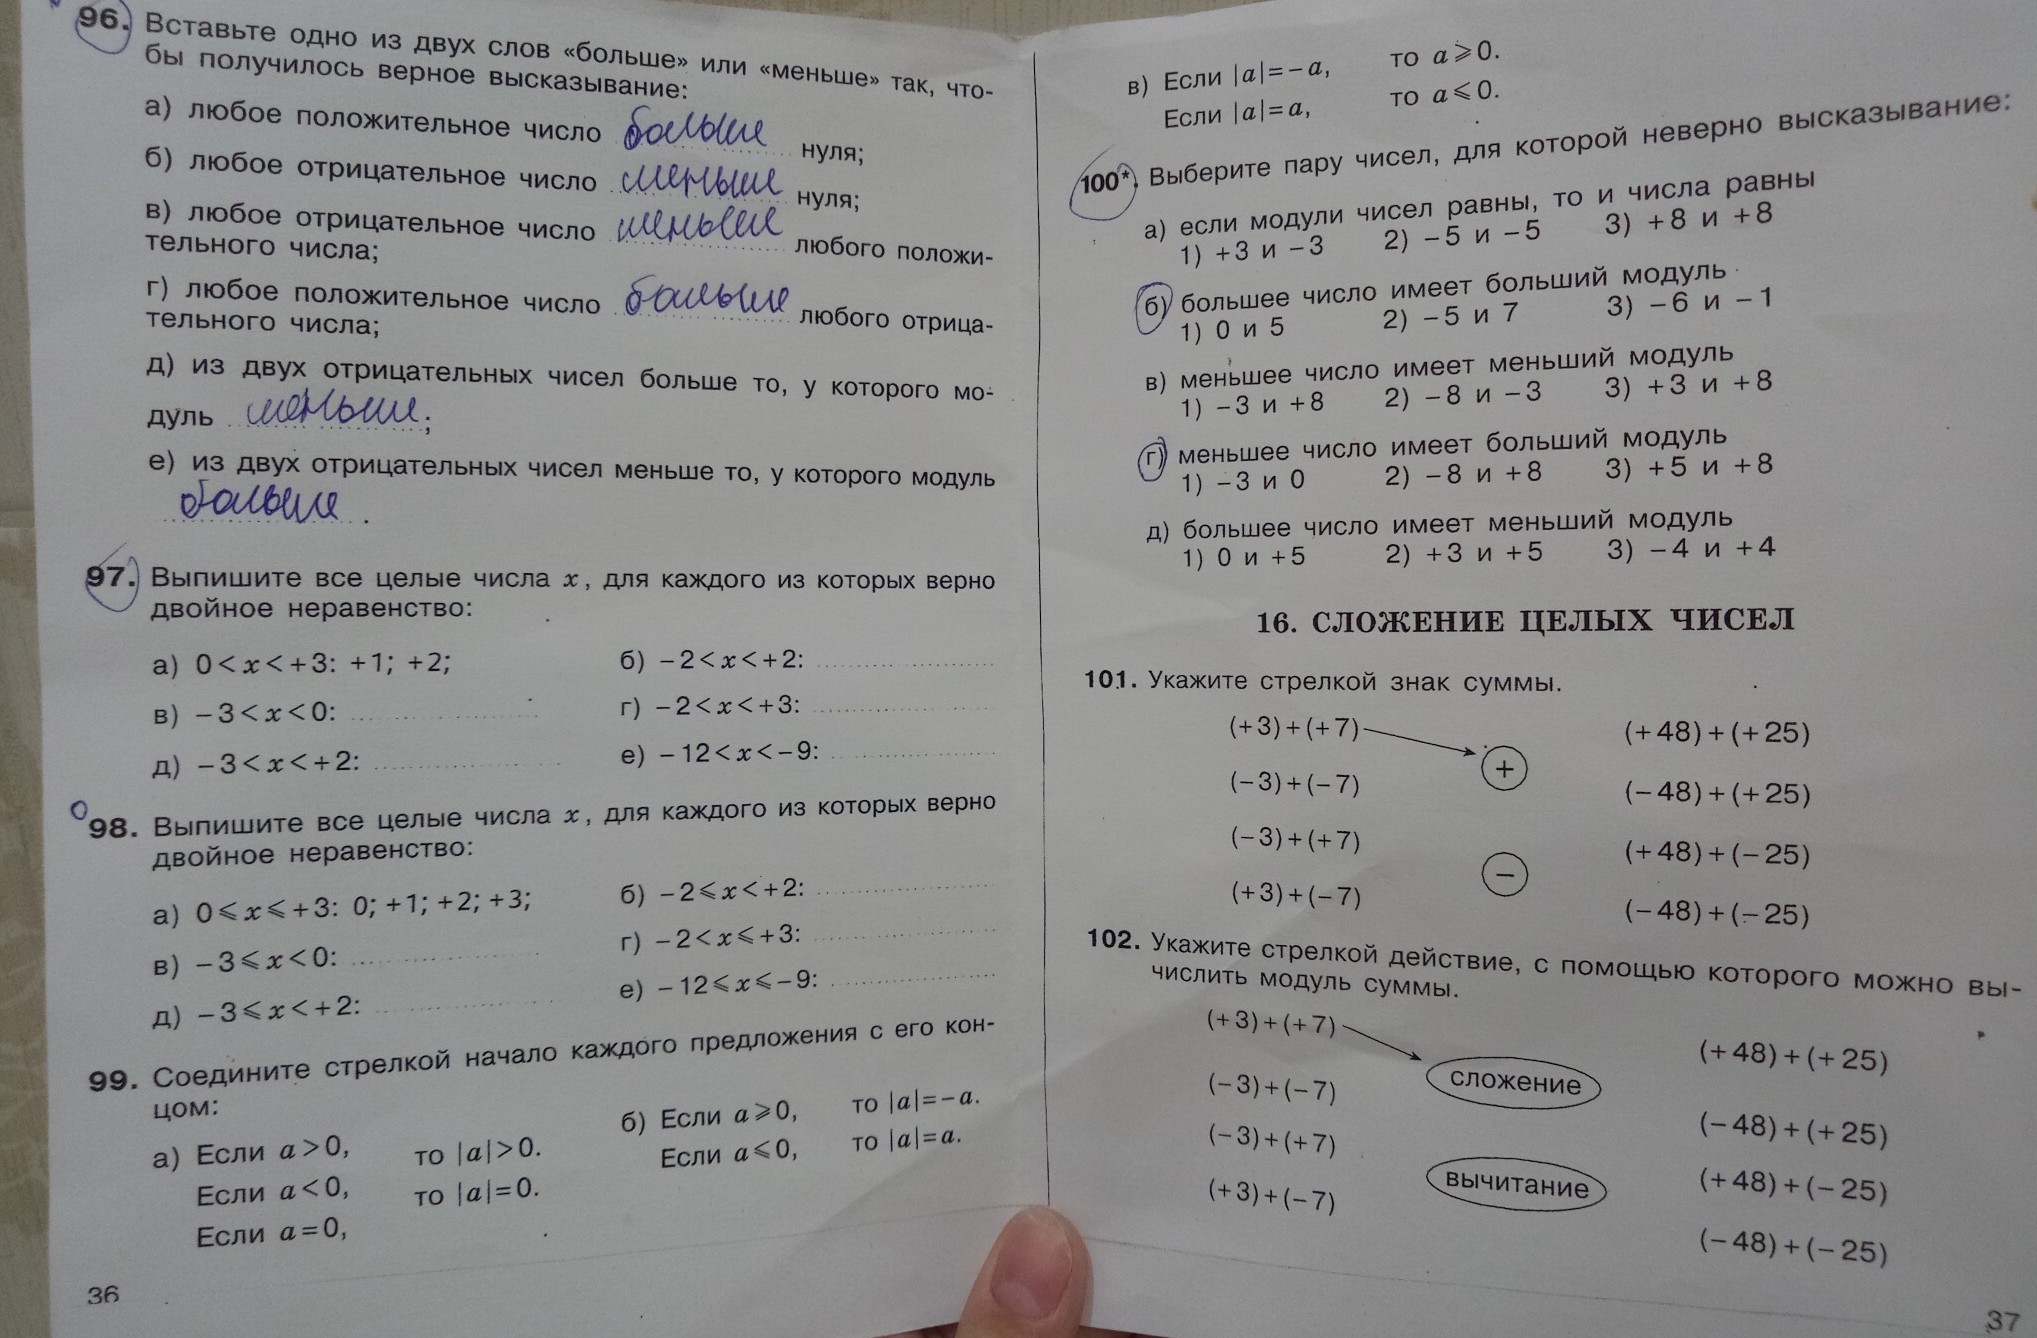 96. Вставьте одно из двух слов «больше» или «меньше» так, что-
бы получилось верное высказывание:
а) любое положительное число больше нуля;
б) любое отрицательное число меньше нуля;
в) любое отрицательное число меньше любого положи-
тельного числа;
г) любое положительное число больше любого отрица-
тельного числа;
д) из двух отрицательных чисел больше то, у которого мо-
дуль меньше;
е) из двух отрицательных чисел меньше то, у которого модуль
больше.
97. Выпишите все целые числа x, для каждого из которых верно
двойное неравенство:
а) 0<x<+3: +1; +2; б) −2<x<+2:
в) −3<x<0: г) −2<x<+3:
д) −3<x<+2: е) −12<x<−9:
98. Выпишите все целые числа x, для каждого из которых верно
двойное неравенство:
а) 0⩽x⩽+3: 0; +1; +2; +3; б) −2⩽x<+2:
в) −3⩽x<0: г) −2<x⩽+3:
д) −3⩽x<+2: е) −12⩽x⩽−9:
99. Соедините стрелкой начало каждого предложения с его кон-
цом:
а) Если a>0, то |a|>0. б) Если a⩾0, то |a|=−a.
Если a<0, то |a|=0. Если a⩽0, то |a|=a.
Если a=0,
36
в) Если |a|=−a, то a⩾0.
Если |a|=a, то a⩽0.
100*. Выберите пару чисел, для которой неверно высказывание:
а) если модули чисел равны, то и числа равны
1) +3 и −3 2) −5 и −5 3) +8 и +8
б) большее число имеет больший модуль
1) 0 и 5 2) −5 и 7 3) −6 и −1
в) меньшее число имеет меньший модуль
1) −3 и +8 2) −8 и −3 3) +3 и +8
г) меньшее число имеет больший модуль
1) −3 и 0 2) −8 и +8 3) +5 и +8
д) большее число имеет меньший модуль
1) 0 и +5 2) +3 и +5 3) −4 и +4
16. СЛОЖЕНИЕ ЦЕЛЫХ ЧИСЕЛ
101. Укажите стрелкой знак суммы.
(+3)+(+7) (+48)+(+25)
+
(−3)+(−7) (−48)+(+25)
(−3)+(+7) (+48)+(−25)
−
(+3)+(−7) (−48)+(−25)
102. Укажите стрелкой действие, с помощью которого можно вы-
числить модуль суммы.
(+3)+(+7) (+48)+(+25)
сложение
(−3)+(−7) (−48)+(+25)
(−3)+(+7) (+48)+(−25)
вычитание
(+3)+(−7) (−48)+(−25)
37